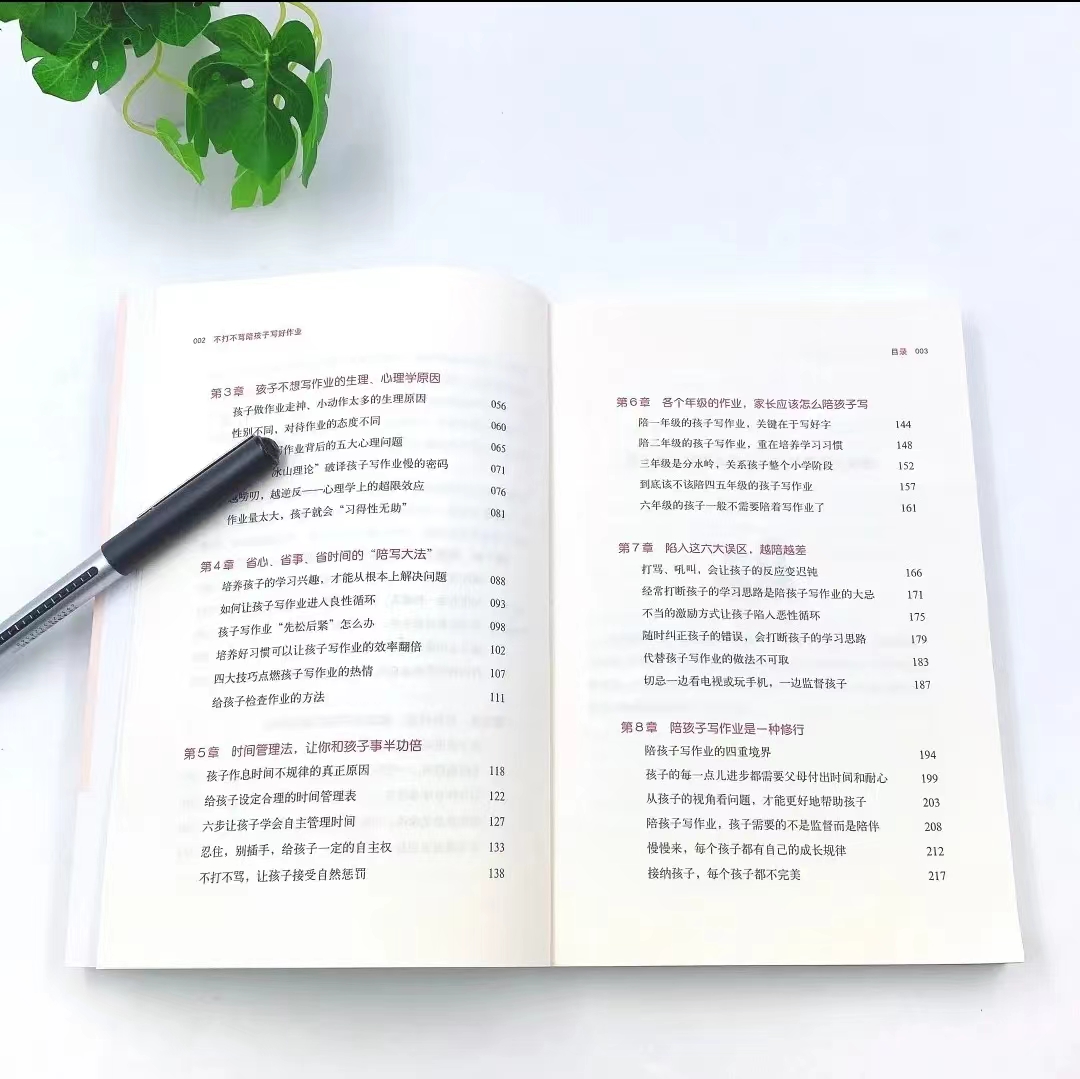 002 不打不骂陪孩子写好作业
第3章 孩子不想写作业的生理、心理学原因
孩子做作业走神、小动作太多的生理原因 056
性别不同，对待作业的态度不同 060
写作业背后的五大心理问题 065
冰山理论”破译孩子写作业慢的密码 071
越唠叨，越逆反——心理学上的超限效应 076
作业量太大，孩子就会“习得性无助” 081
第4章 省心、省事、省时间的“陪写大法”
培养孩子的学习兴趣，才能从根本上解决问题 088
如何让孩子写作业进入良性循环 093
孩子写作业“先松后紧”怎么办 098
培养好习惯可以让孩子写作业的效率翻倍 102
四大技巧点燃孩子写作业的热情 107
给孩子检查作业的方法 111
第5章 时间管理法，让你和孩子事半功倍
孩子作息时间不规律的真正原因 118
给孩子设定合理的时间管理表 122
六步让孩子学会自主管理时间 127
忍住，别插手，给孩子一定的自主权 133
不打不骂，让孩子接受自然惩罚 138
目录 003
第6章 各个年级的作业，家长应该怎么陪孩子写
陪一年级的孩子写作业，关键在于写好字 144
陪二年级的孩子写作业，重在培养学习习惯 148
三年级是分水岭，关系孩子整个小学阶段 152
到底该不该陪四五年级的孩子写作业 157
六年级的孩子一般不需要陪着写作业了 161
第7章 陷入这六大误区，越陪越差
打骂、吼叫，会让孩子的反应变迟钝 166
经常打断孩子的学习思路是陪孩子写作业的大忌 171
不当的激励方式让孩子陷入恶性循环 175
随时纠正孩子的错误，会打断孩子的学习思路 179
代替孩子写作业的做法不可取 183
切忌一边看电视或玩手机，一边监督孩子 187
第8章 陪孩子写作业是一种修行
陪孩子写作业的四重境界 194
孩子的每一点儿进步都需要父母付出时间和耐心 199
从孩子的视角看问题，才能更好地帮助孩子 203
陪孩子写作业，孩子需要的不是监督而是陪伴 208
慢慢来，每个孩子都有自己的成长规律 212
接纳孩子，每个孩子都不完美 217